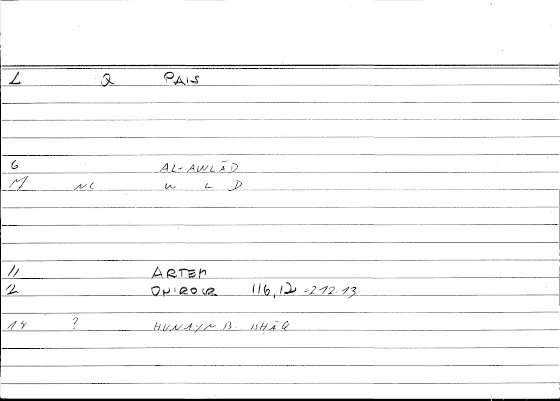 L Q PAIS
6 AL-AWLĀD
M NC W L D
11 ARTEM
2 ONIROCR 116,12 =212.13
14 ? HUNAYN B. ISHĀQ